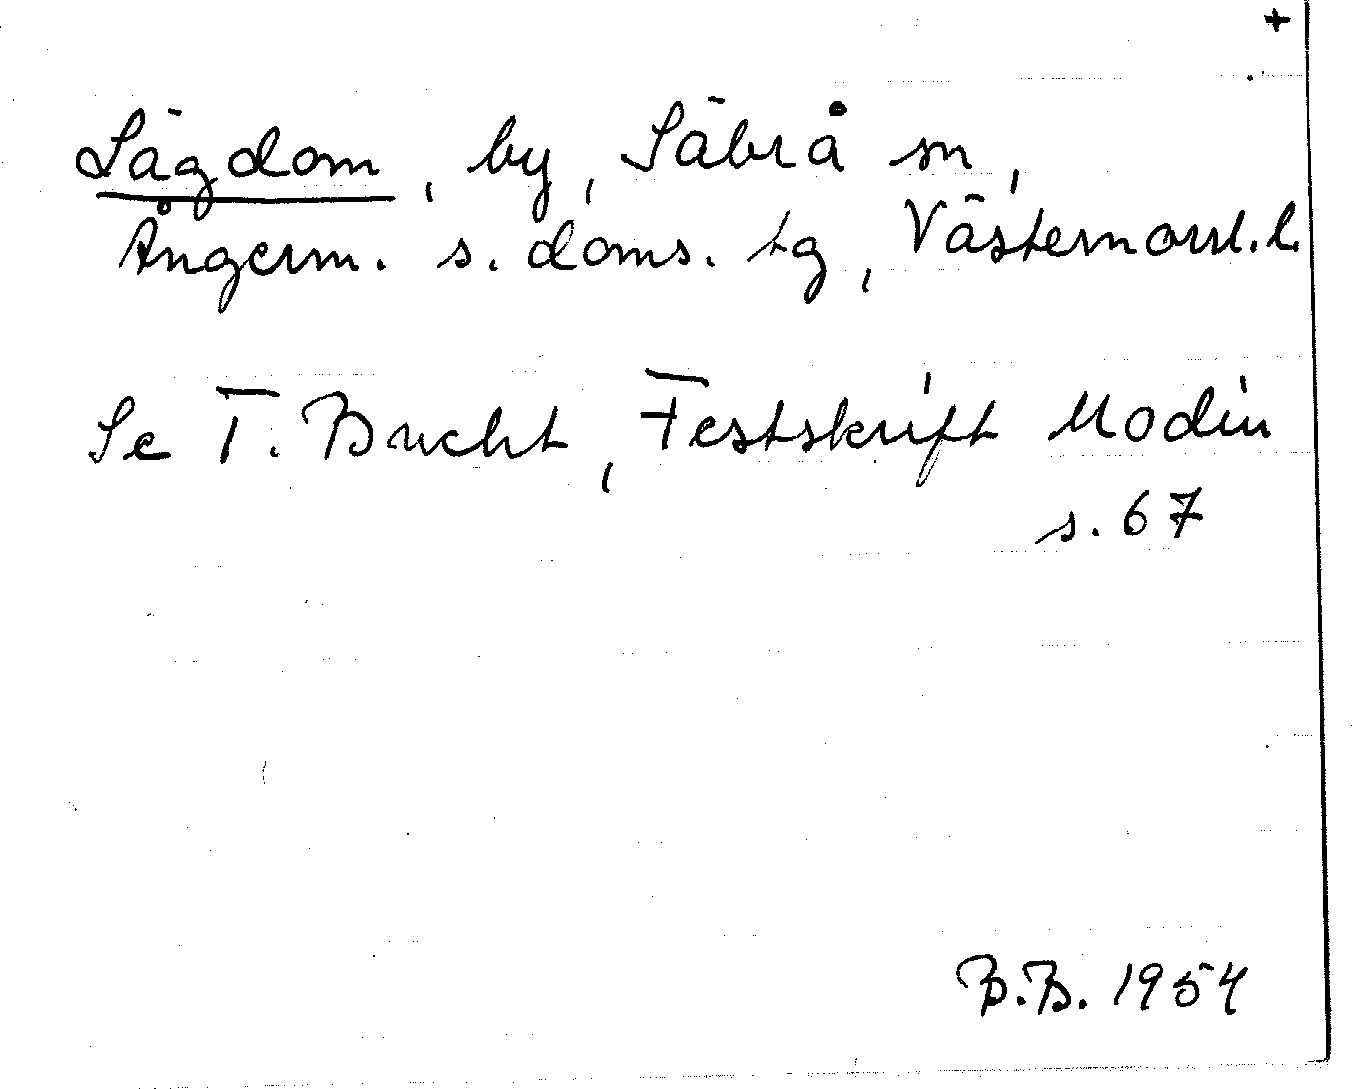 +
Sägdom, by, Säbrå sn,
Ångerm. s. doms. tg, Västernorrl. l.
Se T. Bucht, Festskrift Modin
s. 67
B.B. 1954